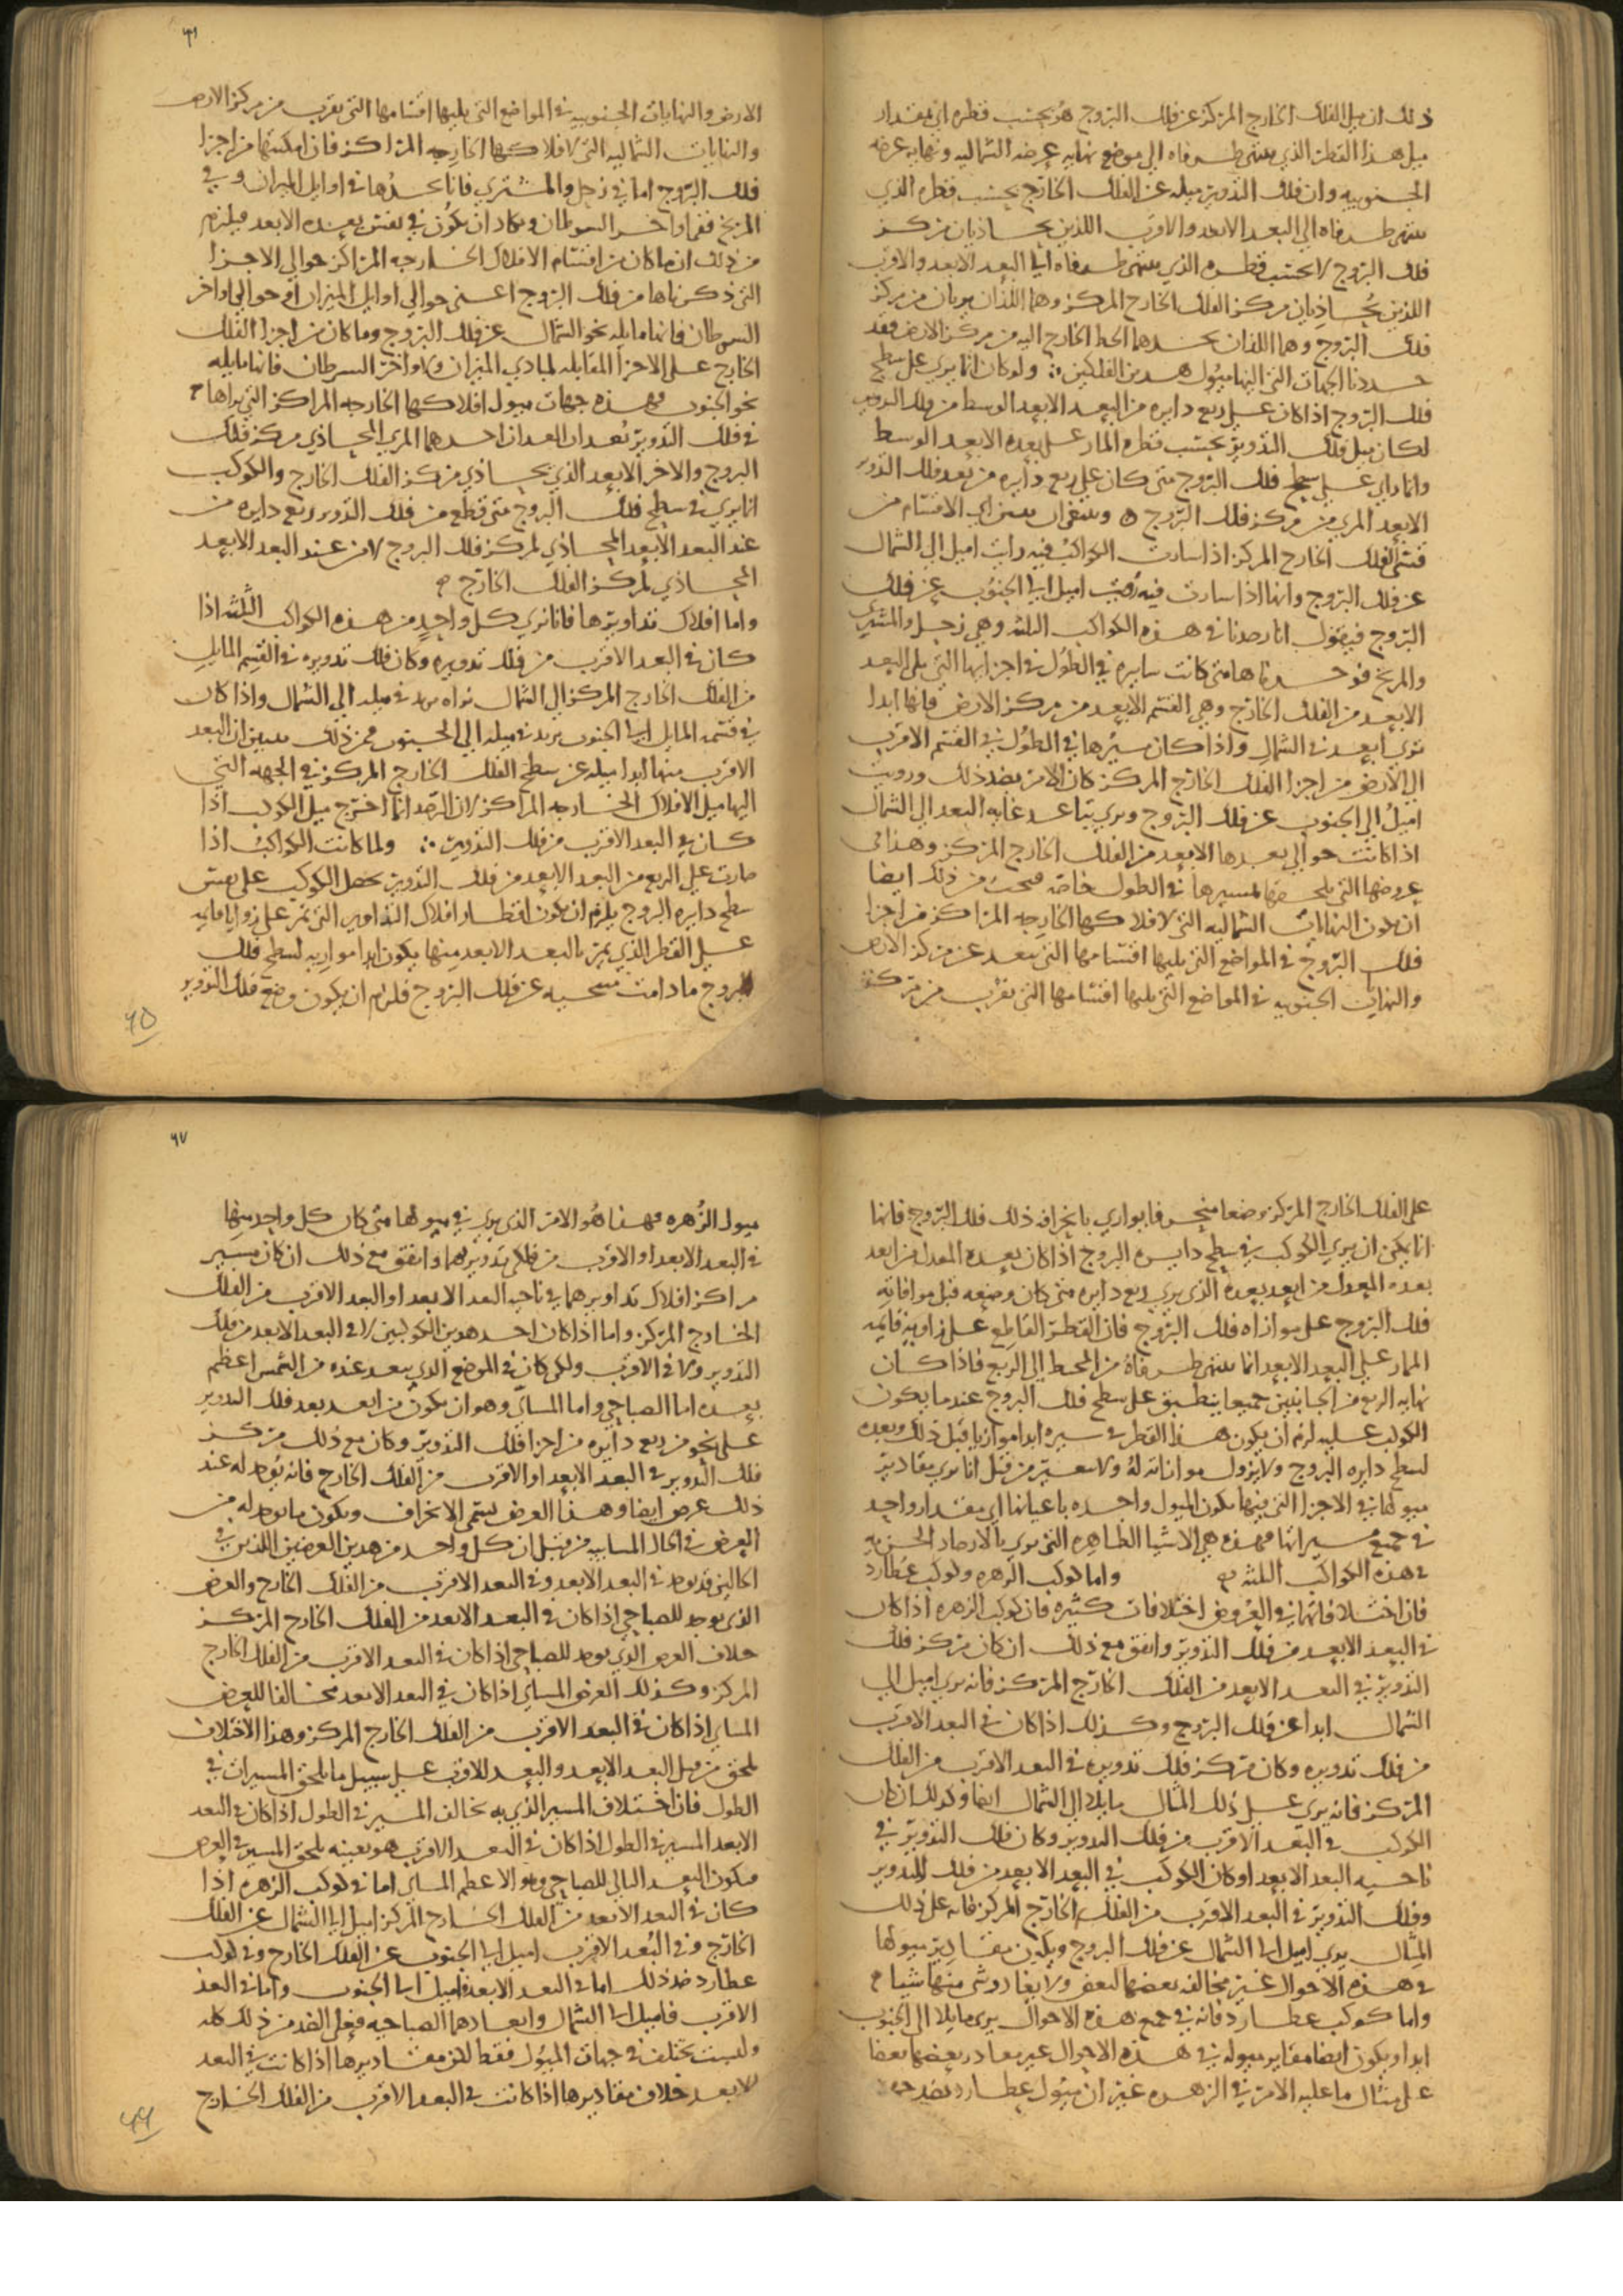 ذلك ان ميل الفلك الخارج المركز عن فلك البروج هو بحسب قطره اي بمقدار
ميل هذا القطر الذي ينتهي طرفاه الي موضع نهايه عرضه الشماليه ونهايه عرضه
الجنوبيه وان فلك التدوير ميله عن الفلك الخارج بحسب قطره الذي
ينتهي طرفاه الي البعد الابعد والاقرب اللذين يحاذيان مركز
فلك البروج لا بحسب قطره الذي ينتهي طرفاه الي البعد الابعد والاقرب
اللذين يحاذيان مركز الفلك الخارج المركز وهما اللذان يريان من مركز
فلك البروج وهما اللذان يحدهما الخط الخارج اليه من مركز الارض فقد
حددنا الجهات التي اليها ميول هذين الفلكين ولو كان انما يري علي سطح
فلك البروج اذا كان علي ربع دايره من البعد الابعد الوسط من فلك التدوير
لكان ميل فلك التدوير بحسب قطره المار علي بعده الابعد الوسط
وانما راي علي سطح فلك البروج متي كان علي ربع دايره من بعد فلك التدوير
الابعد المري من مركز فلك البروج وينبغي ان من اي الاقسام من
قسمي الفلك الخارج المركز اذا سارت الكواكب فيه رايت اميل الي الشمال
عن فلك البروج وانها اذا سارت فيه اميل الي الجنوب عن فلك
البروج فيقول انا رصدنا في هذه الكواكب الثلثه وهي زحل والمشتري
والمريخ فوجدناها متي كانت سايره في الطول في اجزايها التي تلي البعد
الابعد من الفلك الخارج وهي القسم الابعد من مركز الارض فانها ابدا
تري ابعد في الشمال واذا كان مسيرها في الطول في القسم الاقرب
الي الارض من اجزا الفلك الخارج المركز كان الامر بضد ذلك ورويت
اميل الي الجنوب عن فلك البروج ويري تباعد غايه البعد الي الشمال
اذا كانت حوالي بعدها الابعد من الفلك الخارج المركز وهذا في
عروضها التي تلحقها لمسيرها في الطول خاصه فيجب من ذلك ايضا
ان يكون النهايات الشماليه التي لافلاكها الخارجه المراكز من اجزا
فلك البروج في المواضع التي يليها اقسامها التي تبعد عن مركز الارض
والنهايات الجنوبيه في المواضع التي يليها اقسامها التي تقرب من مركز
٦٦
الارض والنهايات الجنوبيه في المواضع التي يليها اقسامها التي تقرب من مركز الارض
والنهايات الشماليه التي لافلاكها الخارجه المراكز فان امكنتها من اجزا
فلك البروج اما في زحل والمشتري فانا نحدها في اوايل الميزان وفي
المريخ ففي اواخر السرطان ويكاد ان يكون في نفس بعده الابعد فيلزم
من ذلك ان ما كان من اقسام الافلاك الخارجه المراكز حوالي الاجزا
التي ذكرناها من فلك البروج اعني حوالي اوايل الميزان او حوالي اواخر
السرطان فانها مايله نحو الشمال عن فلك البروج وما كان من اجزا الفلك
الخارج علي الاجزا المقابله لمبادي الميزان ولاواخر السرطان فانها مايله
نحو الجنوب فهذه جهات ميول افلاكها الخارجه المراكز التي يراها
في فلك التدوير بعدان ابعدان احدهما المري المحاذي مركز فلك
البروج والاخر الابعد الذي يحاذي مركز الفلك الخارج والكوكب
انما يري في سطح فلك البروج متي قطع من فلك التدوير ربع دايره من
عند البعد الابعد المحاذي لمركز فلك البروج لا من عند البعد الابعد
المحاذي لمركز الفلك الخارج
واما افلاك تداويرها فانا نري كل واحد من هذه الكواكب الثلثه اذا
كان في البعد الاقرب من فلك تدويره وكان فلك تدويره في القسم المايل
من الفلك الخارج المركز الي الشمال نراه يزيد في ميله الي الشمال واذا كان
في قسمه المايل الي الجنوب يزيد في ميله الي الجنوب فمن ذلك يتبين ان البعد
الاقرب منها ابدا ميله عن سطح الفلك الخارج المركز في الجهه التي
اليها ميل الافلاك الخارجه المراكز لان الرصد انما اخرج ميل الكوكب اذا
كان في البعد الاقرب من فلك التدوير ولما كانت الكواكب اذا
صارت علي الربع من البعد الابعد من فلك التدوير يحصل الكوكب علي نفس
سطح دايره البروج يلزم ان يكون اقطار افلاك التداوير التي تمر علي زوايا قايمه
علي القطر الذي يمر بالبعد الابعد منها يكون ابدا موازيه لسطح فلك
البروج ما دامت منتحيه عن فلك البروج فلزم ان يكون وضع فلك التدوير
٦٥
علي الفلك الخارج المركز وضعا منحرفا يوازي بانحرافه ذلك فلك البروج فانما
انما يمكن ان يري الكوكب في سطح دايره البروج اذا كان بعده المعدل من ابعد
بعده المعدل من ابعد بعده الذي يري ربع دايره متي كان وضعه قبل موافاته
فلك البروج علي موازاه فلك البروج فان القطر القاطع علي زاويه قايمه
المار علي البعد الابعد انما ينتهي طرفاه من المحيط الي الربع فاذا كان
نهايه الربع من الجانبين جميعا ينطبق علي سطح فلك البروج عندما يكون
الكوكب عليه لزم ان يكون هذا القطر في سيره ابدا موازيا قبل ذلك وبعده
لسطح دايره البروج ولا يزول موازاته له ولا يتغير من قبل انا نري مقادير
ميولها في الاجزا التي فيها يكون الميول واحده باعيانها اي مقدار واحد
في جميع مسيراتها فهذه هي الاشيا الظاهره التي تري بالارصاد الجزييه
في هذه الكواكب الثلثه واما كوكب الزهره وكوكب عطارد
فان اختلافاتهما في العروض اختلافات كثيره فان كوكب الزهره اذا كان
في البعد الابعد من فلك التدوير واتفق مع ذلك ان كان مركز فلك
التدوير في البعد الابعد من الفلك الخارج المركز فانه يري اميل الي
الشمال ابدا عن فلك البروج وكذلك اذا كان في البعد الاقرب
من فلك تدويره وكان مركز فلك تدويره في البعد الاقرب من الفلك
المركز فانه يري علي ذلك المثال مايلا الي الشمال ايضا وكذلك ان كان
الكوكب في البعد الاقرب من فلك التدوير وكان فلك التدوير في
ناحيه البعد الابعد او كان الكوكب في البعد الابعد من فلك التدوير
وفلك التدوير في البعد الاقرب من الفلك الخارج المركز فانه علي ذلك
المثال يري اميل الي الشمال عن فلك البروج ويكون مقادير ميولها
في هذه الاحوال غير مخالفه بعضها لبعض ولا يغادر شي منها شيا
واما كوكب عطارد فانه في جميع هذه الاحوال يري مايلا الي الجنوب
ابدا ويكون ايضا مقادير ميوله في هذه الاحوال غير مغادر بعضها بعضا
علي مثال ما عليه الامر في الزهره غير ان ميول عطارد بضد
٦٧
ميول الزهره فهذا هو الامر الذي يري في ميولها متي كان كل واحد منها
في البعد الابعد او الاقرب من فلكي تدويرهما واتفق مع ذلك ان كان مسير
مراكز افلاك تداويرهما في ناحيه البعد الابعد او البعد الاقرب من الفلك
الخارج المركز واما اذا كان احد هذين الكوكبين لا في البعد الابعد من فلك
التدوير ولا في الاقرب ولكن كان في الموضع الذي يبعد عنده من الشمس اعظم
بعده اما الصباحي واما المسائي وهو ان يكون من ابعد بعد فلك التدوير
علي نحو من ربع دايره من اجزا فلك التدوير وكان مع ذلك مركز
فلك التدوير في البعد الابعد او الاقرب من الفلك الخارج فانه يوجد له عند
ذلك عرض ايضا وهذا العرض يسمي الانحراف ويكون ما يوجد له من
العرض في الحال المسايه من قبل ان كل واحد من هذين العرضين اللذين في
الحالين قد يوجد في البعد الابعد وفي البعد الاقرب من الفلك الخارج والعرض
الذي يوجد للصباحي اذا كان في البعد الابعد من الفلك الخارج المركز
خلاف العرض الذي يوجد للصباحي اذا كان في البعد الاقرب من الفلك الخارج
المركز وكذلك العرض المسائي اذا كان في البعد الابعد مخالفا للعرض
المسائي اذا كان في البعد الاقرب من الفلك الخارج المركز وهذا الاختلاف
يلحق من قبل البعد الابعد والبعد الاقرب علي سبيل ما يلحق المسيرات في
الطول فان اختلاف المسير الذي به يخالف المسير في الطول اذا كان في البعد
الابعد المسير في الطول اذا كان في البعد الاقرب هو بعينه يلحق المسير في العرض
فيكون البعد التالي للصباحي وهو الاعظم المسائي اما في كوكب الزهره اذا
كان في البعد الابعد من الفلك الخارج المركز اميل الي الشمال عن الفلك
الخارج وفي البعد الاقرب اميل الي الجنوب عن الفلك الخارج وفي كوكب
عطارد ضد ذلك اما في البعد الابعد فاميل الي الجنوب واما في البعد
الاقرب فاميل الي الشمال وابعادهما الصباحيه فعلي الضد من ذلك كله
وليست تختلف في جهات الميول فقط لكن مقاديرها اذا كانت في البعد
الابعد خلاف مقاديرها اذا كانت في البعد الاقرب من الفلك الخارج
٦٦